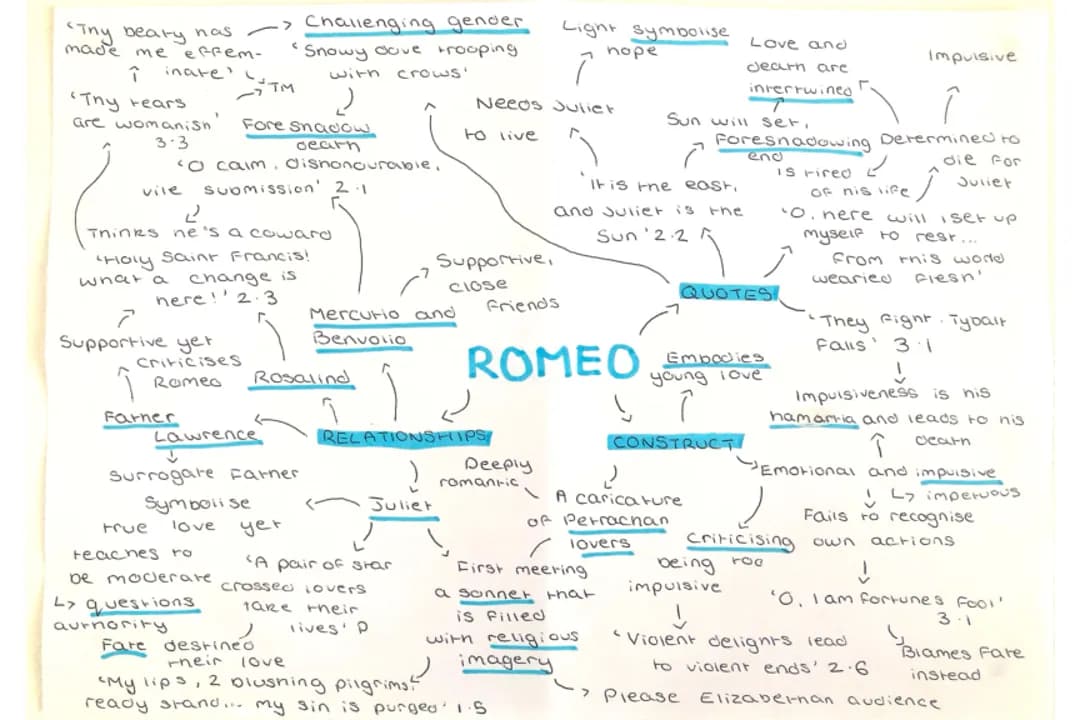 'Thy beauty has
made me effem-
inate'
Challenging gender
'Snowy dove trooping
with crows'
TM
'Thy tears
are womanish'
3.3
Foreshadow
death
'O calm, dishonourable,
vile submission' 2.1
Thinks he's a coward
'Holy Saint Francis!
What a change is
here!' 2.3
Supportive yet
criticises
Romeo
Father
Lawrence
Surrogate Father
Rosalind
Mercutio and
Benvolio
Supportive,
close
friends
RELATIONSHIPS
ROMEO
Light symbolise
hope
Needs Juliet
to live
'It is the east,
and Juliet is the
Sun' 2.2
Love and
death are
intertwined
Sun will set,
Foreshadowing
end
Impulsive
Determined to
die for
Juliet
is tired
of his life
'O, here will i set up
myself to rest...
From this world
wearied flesh'
QUOTES
'They fight. Tybalt
falls' 3.1
Impulsiveness is his
hamartia and leads to his
death
Embodies
young love
CONSTRUCT
Emotional and impulsive
↳ impetuous
Fails to recognise
own actions
'O, I am fortunes fool'
3.1
Blames Fate
instead
Criticising
being too
impulsive
'Violent delights lead
to violent ends' 2.6
A caricature
of Petrachan
lovers
Deeply
romantic
Juliet
Symbolise
true love yet
teaches to
be moderate
↳ questions
authority
'A pair of star
crossed lovers
take their
lives' P
Fate destined
their love
First meeting
a sonnet that
is filled
with religious
imagery
'My lips, 2 blushing pilgrims,
ready stand... my sin is purged' 1.5
Please Elizabethan audience